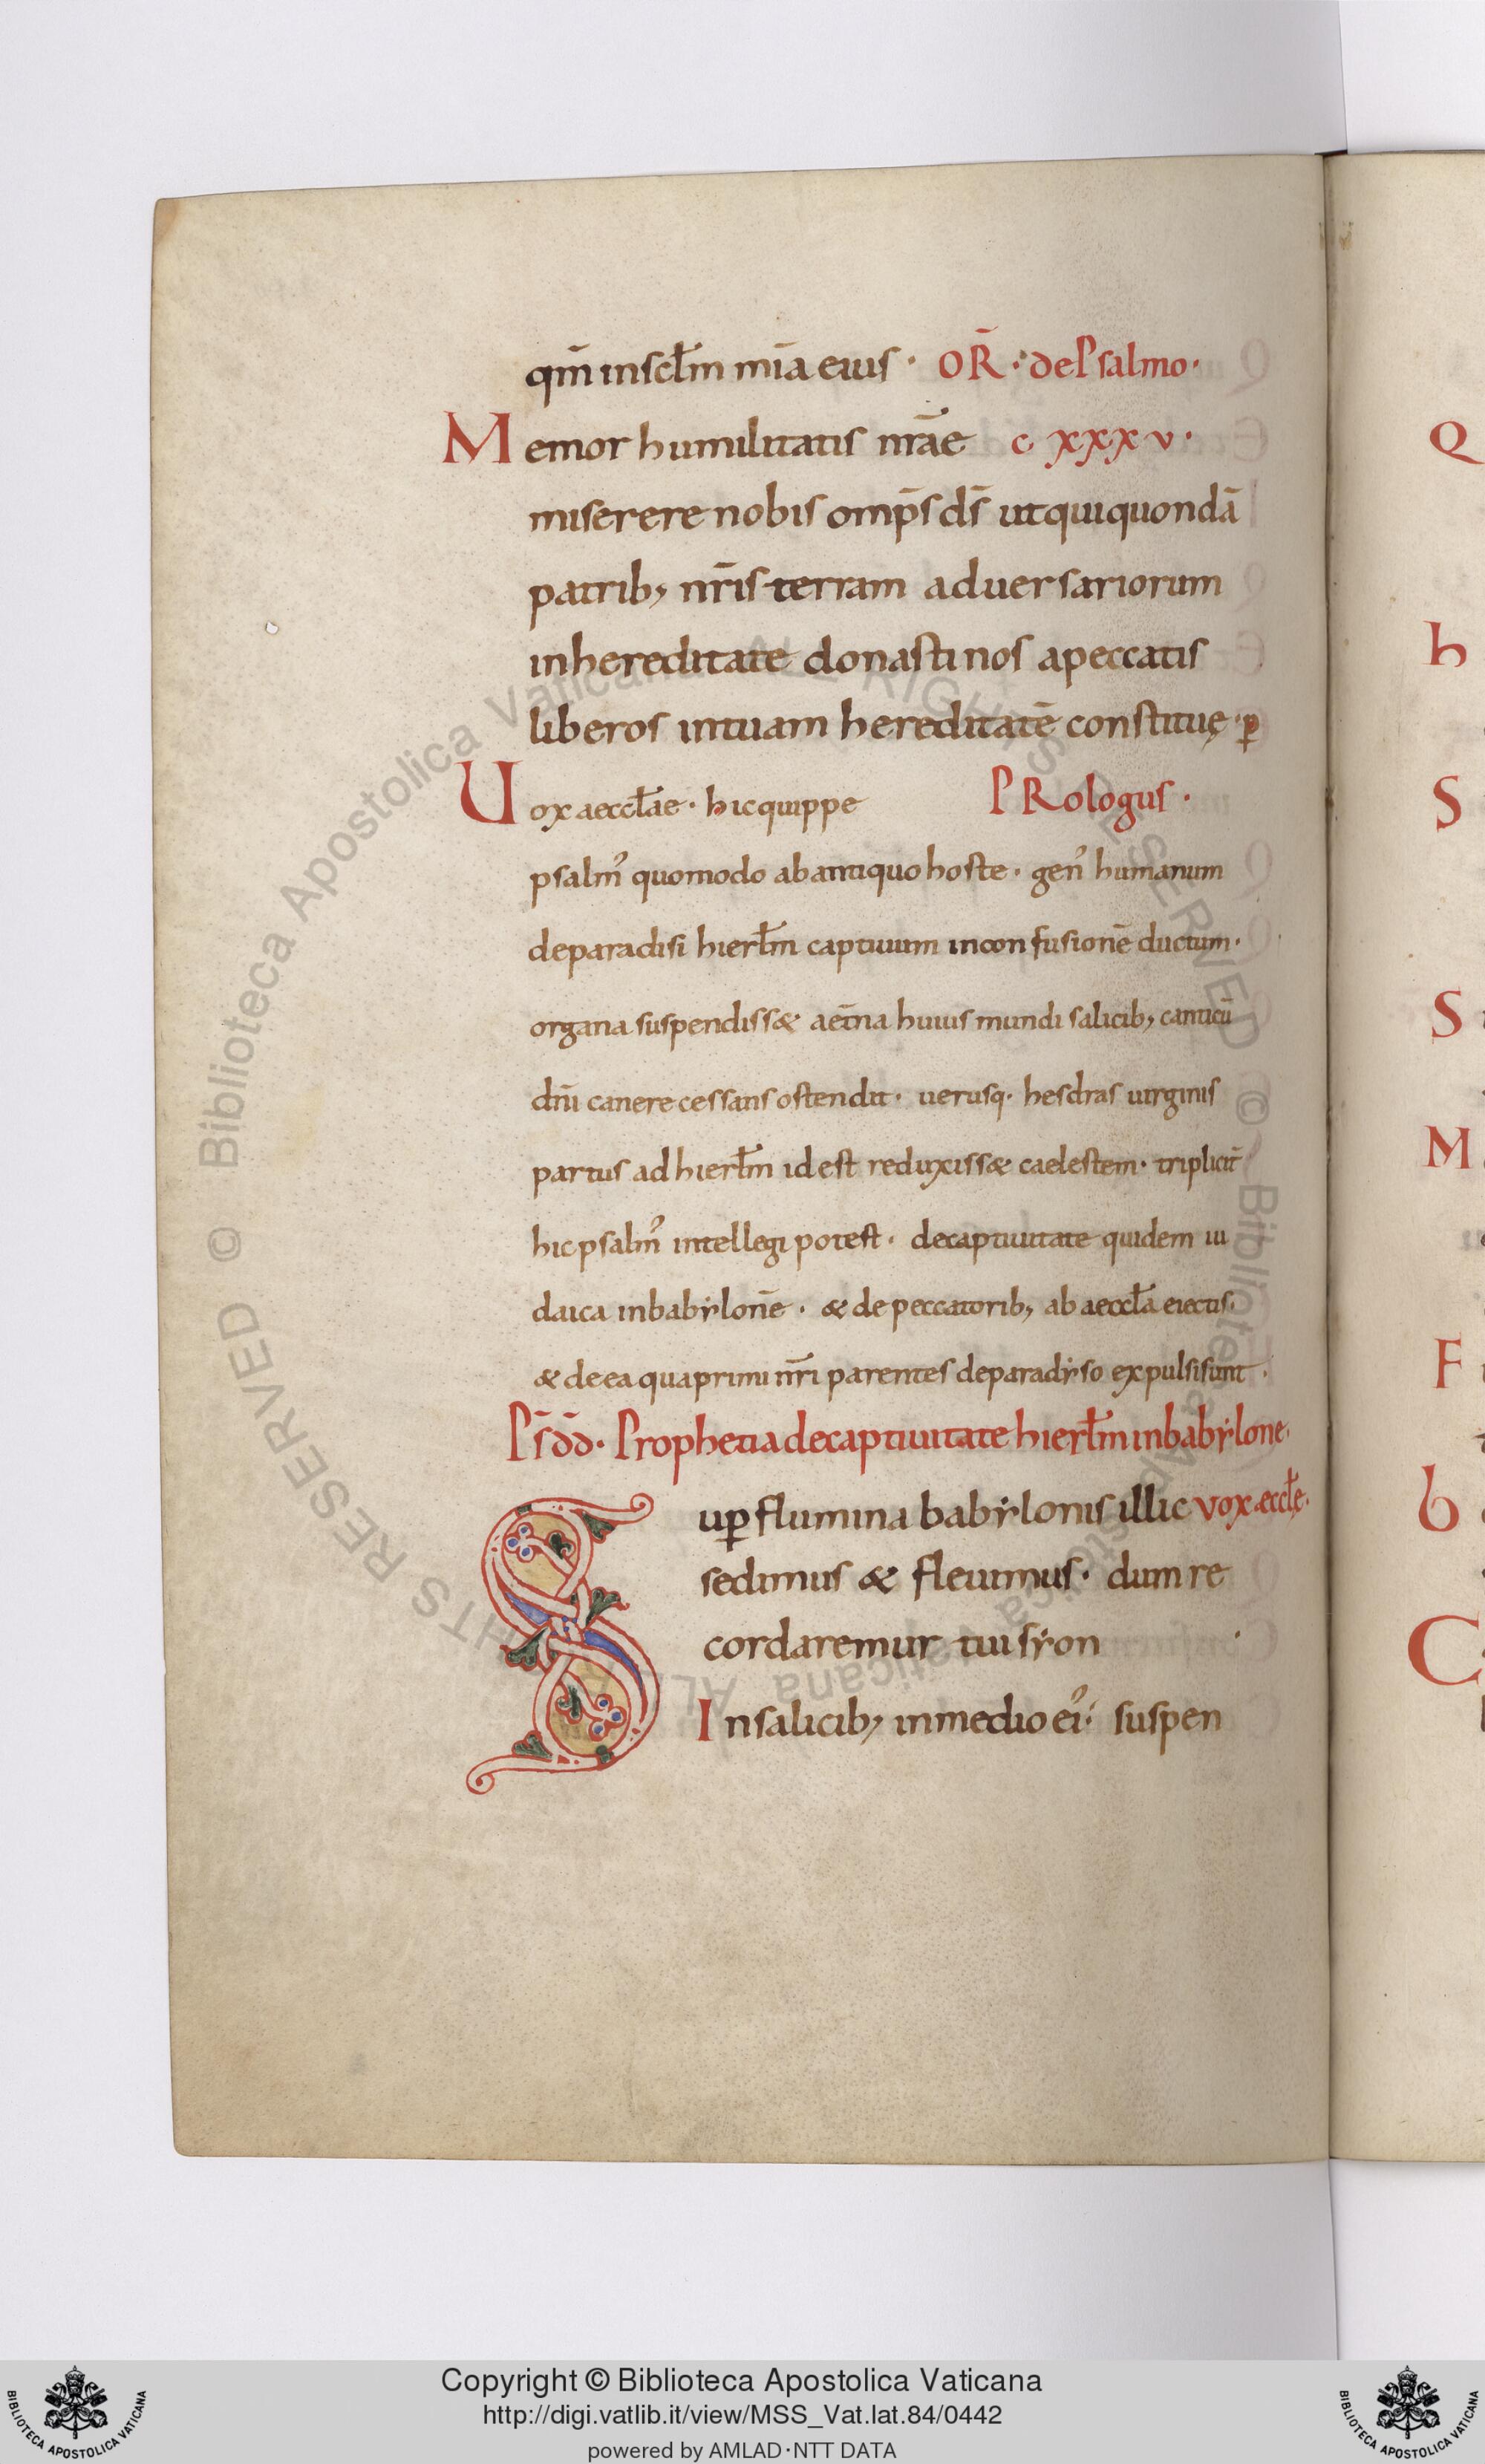 qm̄ insc̄lm mīa eius · OR̄ · de Psalmo ·
Memor humilitatis nr̄ae c xxxv ·
miserere nobis omp̄s ds̄ ut qui quondā
patrib; nr̄is terram aduersariorum
inhereditate donasti nos apeccatis
liberos intuam hereditatē constituę · p̄
Uox aeccl̄ae · hic quippe PRologus ·
psalm᾽ quomodo abantiquo hoste · gen᾽ humanum
deparadisi hierl̄m captiuum inconfusionē ductum ·
organa suspendisse& aet̄na huius mundi salicib; canticū
dn̄i canere cessans ostendit · uerusq · hesdras uirginis
partus ad hierl̄m id est reduxiss& caelestem · triplicit̄
hic psalm᾽ intellegi potest · decaptiuitate quidem iu
daica inbabẏlonē · & de peccatorib; ab aeccl̄a eiectis ·
& de ea qua primi nr̄i parentes deparadẏso expulsi sunt ·
Ps̄ dd̄ · Prophetia decaptiuitate hierl̄m inbabẏlone ·
Sup̄ flumina babẏlonis illic vox æccl̄ę ·
sedimus & fleuimus · dum re
cordaremur tui sẏon ·
Insalicib; inmedio ei᾽ · suspen
Q
h
S
S
M
F
b
C
Biblioteca Apostolica Vaticana ALL RIGHTS RESERVED © Biblioteca Apostolica Vaticana ALL RIGHTS RESERVED ©
BIBLIOTECA APOSTOLICA VATICANA
Copyright © Biblioteca Apostolica Vaticana
http://digi.vatlib.it/view/MSS_Vat.lat.84/0442
powered by AMLAD·NTT DATA
BIBLIOTECA APOSTOLICA VATICANA